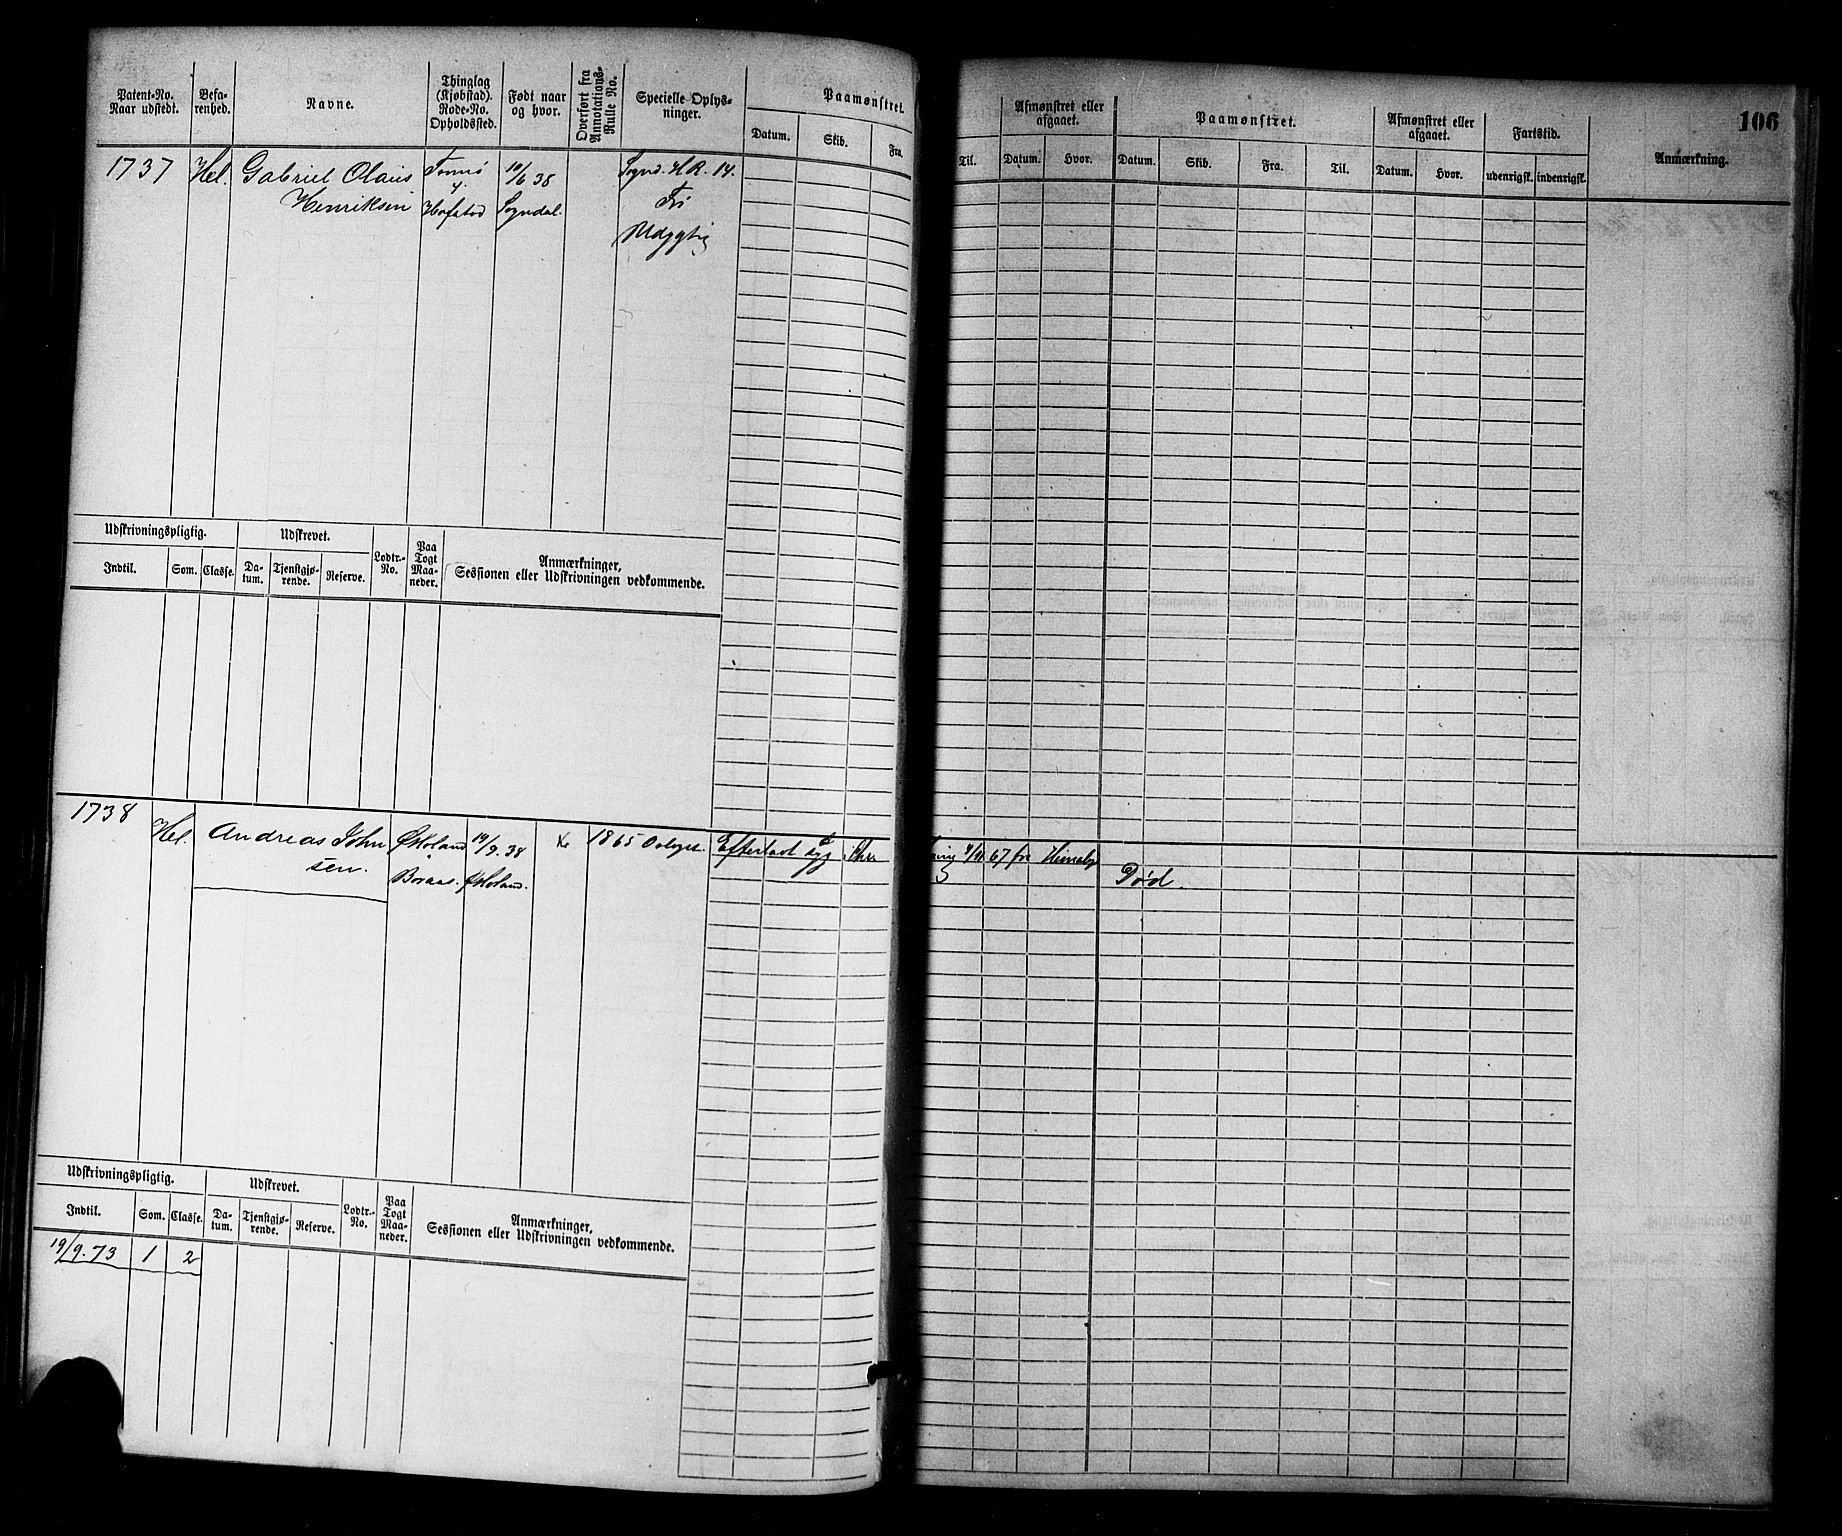 106
Patent-No. Naar udstedt.
Befarenhed.
Navne.
Thinglag (Kjøbstad). Rode-No. Opholdssted.
Født naar og hvor.
Overført fra Annotations-Rulle No.
Specielle Oplysninger.
Paamønstret.
Datum. Skib. Fra. Til.
Afmønstret eller afgaaet.
Datum. Hvor.
Paamønstret.
Datum. Skib. Fra. Til.
Afmønstret eller afgaaet.
Datum. Hvor.
Fartstid.
udenrigsk. indenrigsk.
Anmærkning.
1737 Hel. Gabriel Olaus 10/6 38 Sognd. HR. 14.
Henriksen Sogndal.
Udskrivningspligtig. Udskrevet. Lodtr.-No. Paa Togt Maaneder. Anmærkninger,
Sessionen eller Udskrivningen vedkommende.
Indtil. Som. Classe. Datum. Tjenstgjørende. Reserve.
1738 Hel. Andreas John 19/9. 38 1865
sen.
67 fra
Død.
Udskrivningspligtig. Udskrevet. Lodtr.-No. Paa Togt Maaneder. Anmærkninger,
Sessionen eller Udskrivningen vedkommende.
Indtil. Som. Classe. Datum. Tjenstgjørende. Reserve.
19/9. 73 1 2